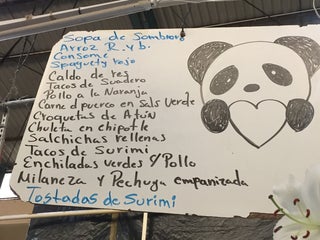 Sopa de Sombrero
Arroz R. y b.
Consomé
Spaguety rojo
Caldo de res
Tacos de Suadero
Pollo a la Naranja
Carne d puerco en Sals Verde
Croquetas de Atún
Chuleta en chipotle
Salchichas rellenas
Tacos de Surimi
Enchiladas verdes S/Pollo
Milaneza y Pechuga empanizada
Tostadas de Surimi